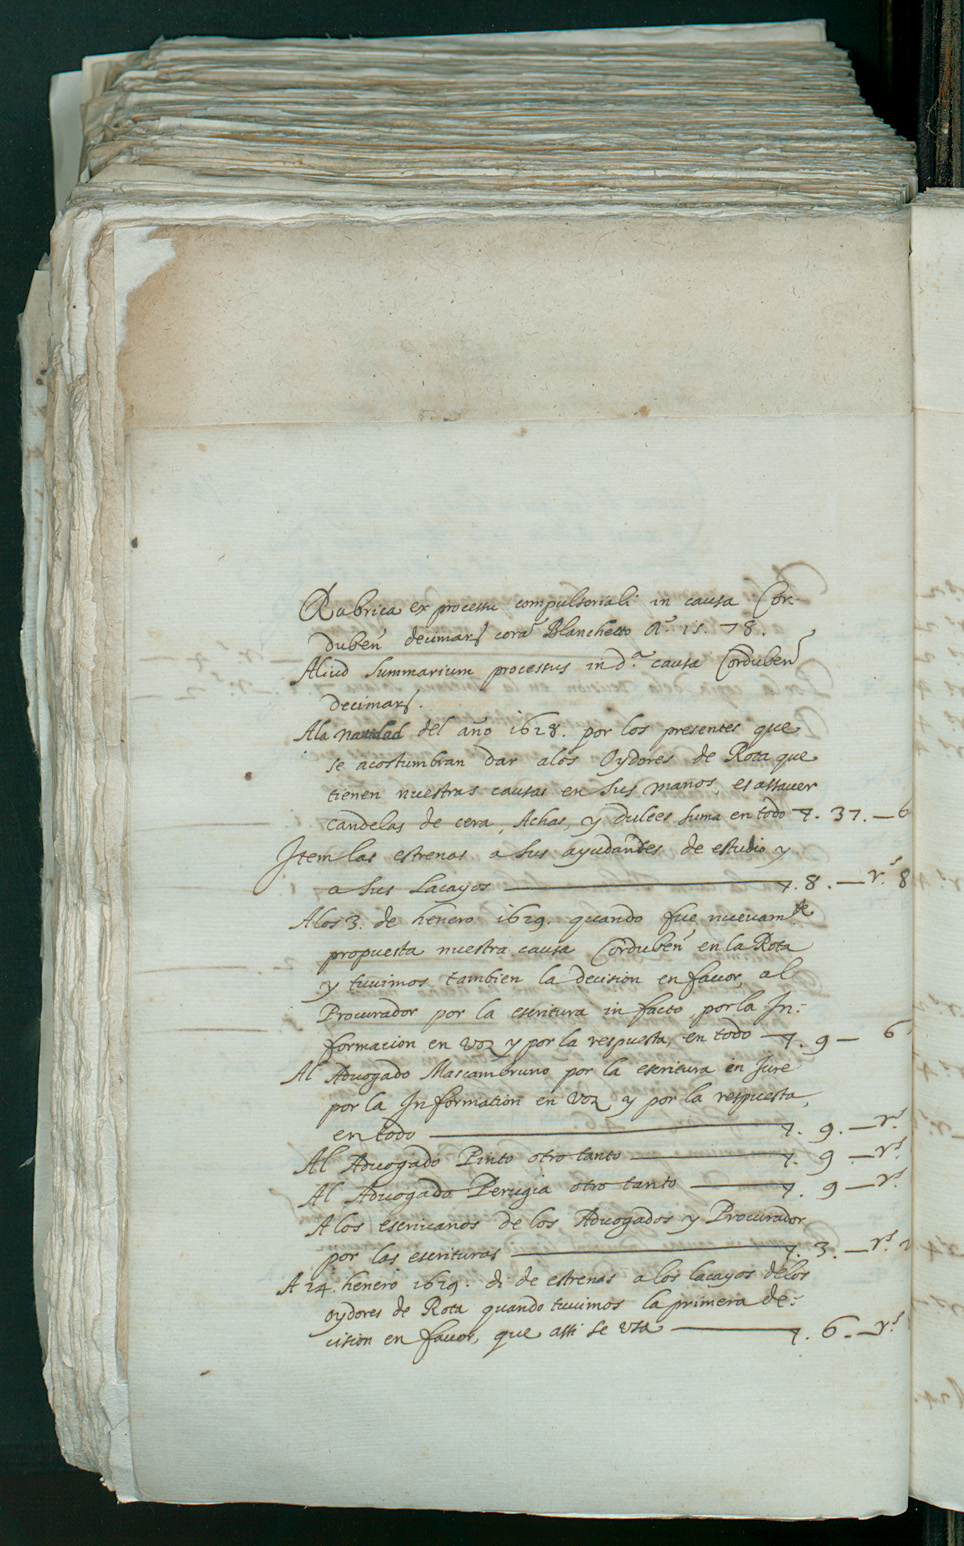 Rubrica ex processu compulsoriali in causa Cor-
duben̄ decimarȝ corā Blanchetto Aº. 15.78.
Aliud summarium processus in d.ª causa Corduben̄
decimarȝ.
A la navidad del año 1628. por los presentes que
se acostumbran dar a los Oydores de Rota que
tienen nuestras causas en sus manos, es assaver
candelas de cera, Achas, y dulces suma en todo 7. 37. — 6
Item las estrenas a sus ayudantes de estudio y
a sus Lacayos — 7. 8. — r.s 8
A los 3. de henero 1629. quando fue nuevam.te
propuesta nuestra causa Corduben̄ en la Rota
y tuvimos tambien la decision en favor, al
Procurador por la escritura in facto, por la In-
formacion en voz y por la respuesta, en todo — 7. 9 — 6
Al Advogado Mascambruno por la escritura en Jure
por la Informacion en voz y por la respuesta,
en todo — 7. 9. — r.s
Al Advogado Pinto otro tanto — 7. 9 — r.s
Al Advogado Perugia otro tanto — 7. 9 — r.s
A los escrivanos de los Advogados y Procurador
por las escrituras — 7. 3. — r.s 2
A 24. henero 1629. di de estrenas a los lacayos de los
oydores de Rota quando tuvimos la primera de-
cision en favor, que assi se vsa — 7. 6. — r.s